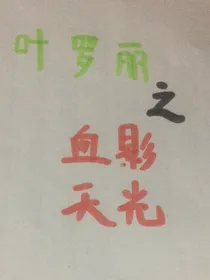 叶罗丽
之
血影
天光